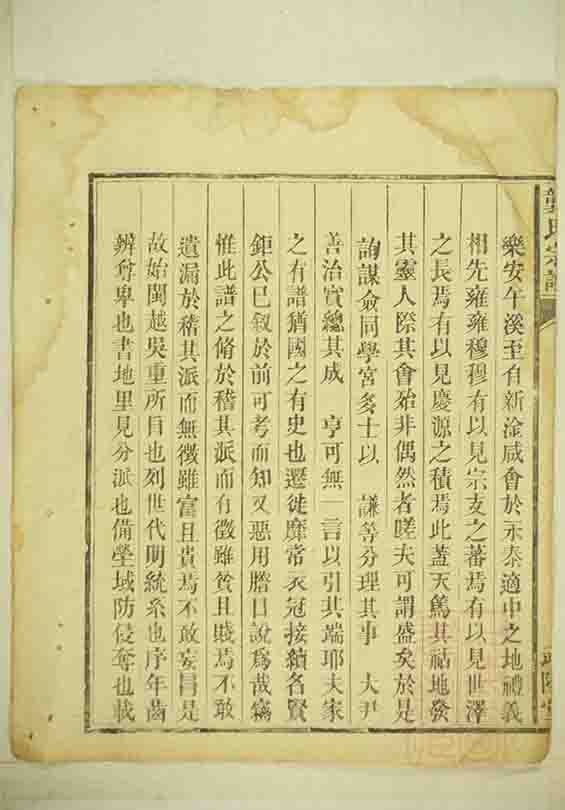 氏宗譜
樂安午溪至自新淦咸會於永泰適中之地禮義
相先雍雍穆穆有以見宗支之蕃焉有以見世澤
之長焉有以見慶源之積焉此蓋天篤其祜地發
其靈人際其會殆非偶然者嗟夫可謂盛矣於是
詢謀僉同學宮多士以 謙等分理其事 大尹
善治實總其成 亨可無一言以引其端耶夫家
之有譜猶國之有史也遷徙靡常衣冠接續名賢
鉅公已叙於前可考而知又惡用膽口說為哉竊
惟此譜之脩於稽其派而有徵雖貧且賤焉不敢
遺漏於稽其派而無徵雖富且貴焉不敢妄冒是
故始閩越吳重所目也列世代明統系也序年齒
辨尊卑也書地里見分派也備塋域防侵奪也載